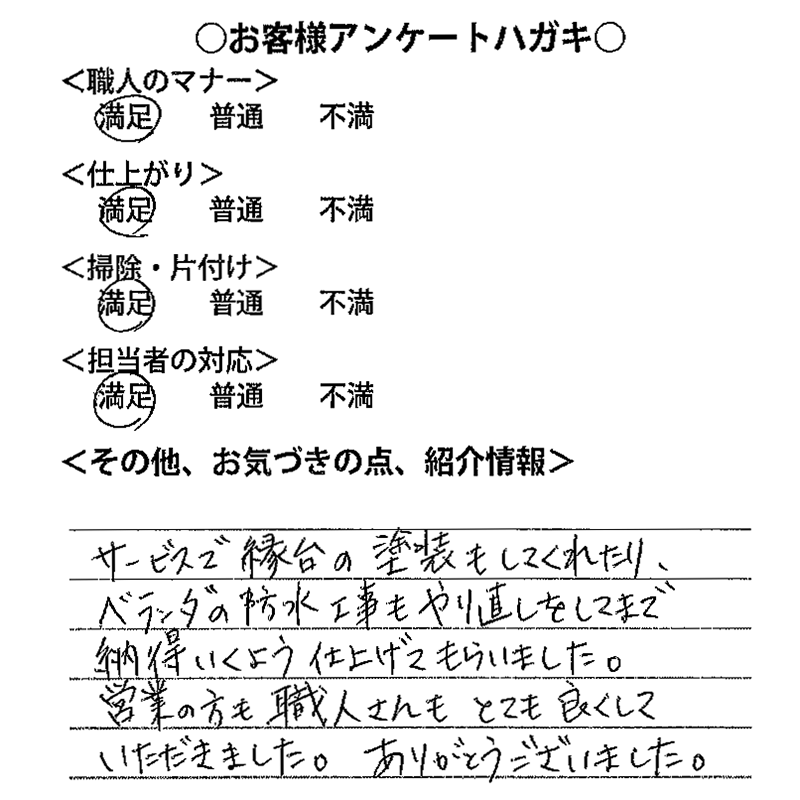 ○お客様アンケートハガキ○
＜職人のマナー＞
満足 普通 不満
＜仕上がり＞
満足 普通 不満
＜掃除・片付け＞
満足 普通 不満
＜担当者の対応＞
満足 普通 不満
＜その他、お気づきの点、紹介情報＞
サービスで縁台の塗装もしてくれたり、
ベランダの防水工事もやり直しをしてまで
納得いくよう仕上げてもらいました。
営業の方も職人さんもとても良くして
いただきました。ありがとうございました。